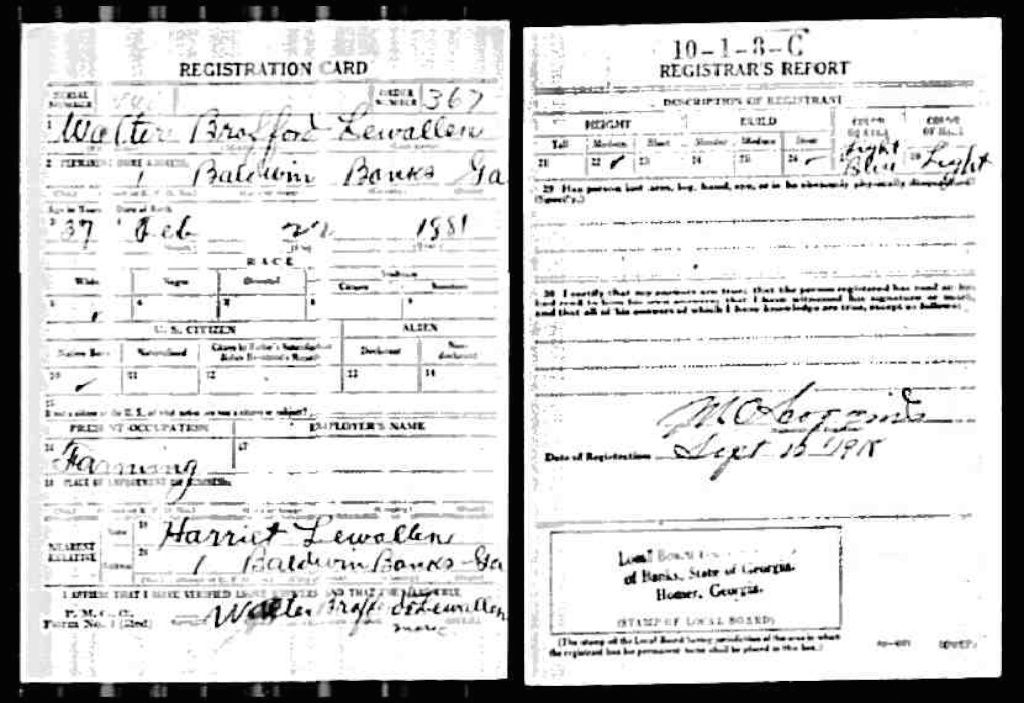 REGISTRATION CARD
SERIAL NUMBER
ORDER NUMBER 367
1 Walter Bradford Lewallen
2 PERMANENT HOME ADDRESS:
1 Baldwin Banks Ga
Age in Years Date of Birth
3 37 4 Feb 22 1881
RACE
White Negro Oriental Indian
Citizen
5 ✓ 6 7 8 9
U. S. CITIZEN ALIEN
Native Born Naturalized Citizen by Father's Naturalization Before Registrant's Majority Declarant Non-declarant
10 ✓ 11 12 13 14
15
If not a citizen of the U. S., of what nation are you a citizen or subject?
PRESENT OCCUPATION EMPLOYER'S NAME
16 Farming 17
18 PLACE OF EMPLOYMENT OR BUSINESS:
NEAREST RELATIVE
Name 19 Harriet Lewallen
Address 20 1 Baldwin Banks Ga
I AFFIRM THAT I HAVE VERIFIED ABOVE ANSWERS AND THAT THEY ARE TRUE
P. M. G. O.
Form No. 1 (Red)
Walter Lewallen
10-1-8-C
REGISTRAR'S REPORT
DESCRIPTION OF REGISTRANT
HEIGHT BUILD COLOR OF EYES COLOR OF HAIR
Tall Medium Short Slender Medium Stout
21 22 ✓ 23 24 25 26 ✓ Light Blue 28 Light
29 Has person lost arm, leg, hand, eye, or is he obviously physically disqualified?
(Specify.)
30 I certify that my answers are true; that the person registered has read or has
had read to him his own answers; that I have witnessed his signature or mark,
and that all of his answers of which I have knowledge are true, except as follows:
M O Scoggins
Date of Registration Sept 12 1918
Local Board
of Banks, State of Georgia.
Homer, Georgia.
(STAMP OF LOCAL BOARD)
(The stamp of the Local Board having jurisdiction of the area in which
the registrant has his permanent home shall be placed in this box.)